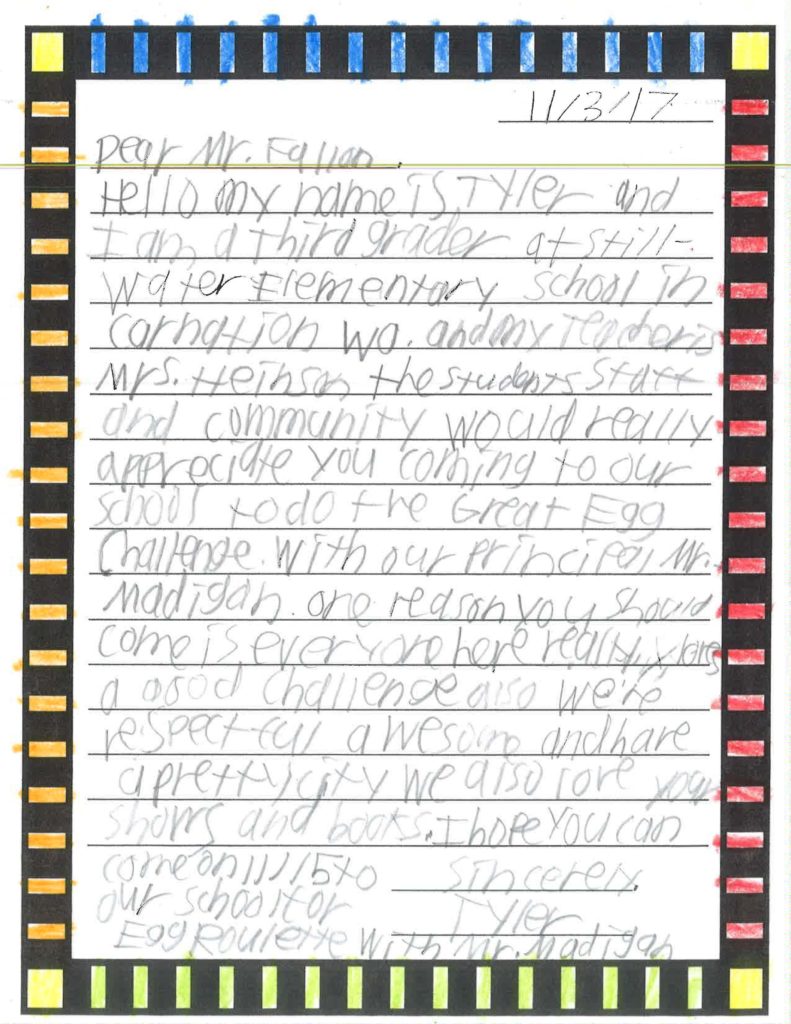 11/3/17
Dear Mr. Fallon.
Hello my name is Tyler and
I am a third grader at Still-
water Elementary school in
carnation wa. and my Teacher is
Mrs. Heinson the students staff
and community would really
appreciate you coming to our
school to do the Great Egg
Challenge. With our principal Mr.
Madigan. one reason you should
come is everyone here really likes
a good challenge also we're
respectful awesome and have
a pretty city we also love your
shows and books. I hope you can
come on 11/15 to
our school for
Egg Roulette with Mr. Madigan
sincerely,
Tyler